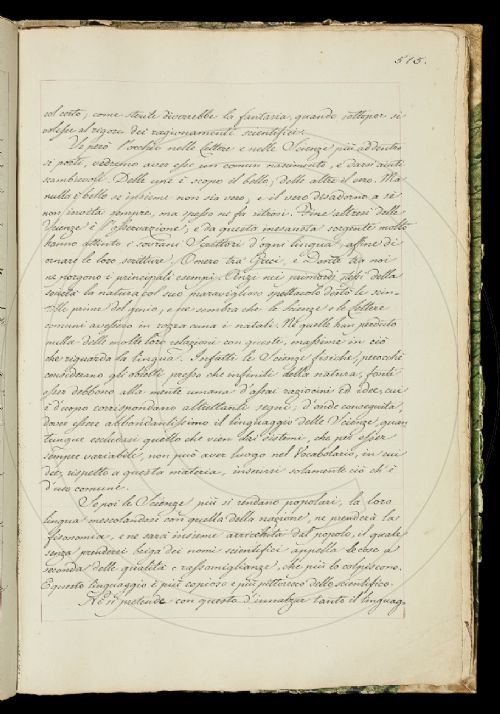 515.
col certo, come sterile diverebbe la fantasia, quando sottopor si
volesse al rigore dei ragionamenti scientifici.
Se però l'occhio nelle Lettere e nelle Scienze più addentro
si ponti, vedremo aver esse un comun nascimento, e darsi aiuti
scambievoli. Delle une è scopo il bello, delle altre il vero. Ma
nulla è bello se insieme non sia vero, e il vero disadorno a sè
non invita sempre, ma spesso ne fa ritrosi. Fine altresì delle
Scienze è l'osservazione, e da questa inesausta sorgente molto
hanno attinto i sovrani Scrittori d'ogni lingua, affine di
ornare le loro scritture. Omero tra' Greci, e Dante tra noi
ne porgono i principali esempi. Anzi nei primordj stessi della
società la natura col suo maraviglioso spettacolo destò le scin-
tille prime del genio, e pare sembra che le Scienze e le Lettere
comuni avessero in rozza cuna i natali. Nè quelle han perduto
nulla delle molte loro relazioni con queste, massime in ciò
che riguarda la lingua. Infatti le Scienze fisiche, perocchè
considerano gli obietti presso che infiniti della natura, fonti
esser debbono alla mente umana d'assai raziocini ed idee, cui
è d'uopo corrispondano altrettanti segni; d'onde conseguita,
dover essere abbondantissimo il linguaggio delle Scienze, quan
tunque escludasi quello che vien dai sistemi, che per esser
sempre variabile, non può aver luogo nel Vocabolario, in cui
dee, rispetto a questa materia, inserirsi solamente ciò ch'è
d'uso comune.
Se poi le Scienze più si rendano popolari, la loro
lingua mescolandosi con quella della nazione, ne prenderà la
fisonomia, e ne sarà insieme arricchita dal popolo, il quale
senza prendersi briga dei nomi scientifici appella le cose a
seconda delle qualità e rassomiglianze, che più lo colpiscono.
E questo linguaggio è più copioso e più pittoresco dello scientifico.
Nè si pretende con questo d'innalzar tanto il linguag-